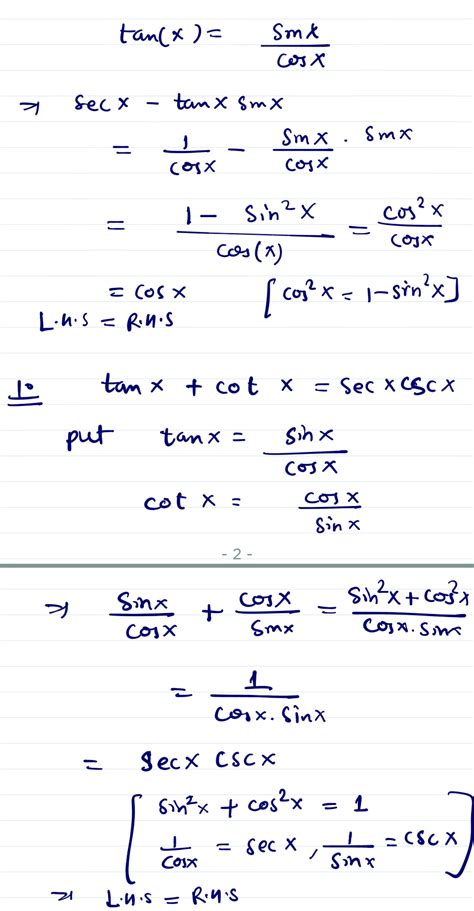 tan(x) = sinx / cosx
⇒ secx - tanx sinx
= 1/cosx - sinx/cosx . sinx
= (1 - sin²x)/cos(x) = cos²x/cosx
= cosx [cos²x = 1-sin²x]
L.H.S = R.H.S
10 tanx + cot x = secxcscx
put tanx = sinx/cosx
cot x = cosx/sinx
- 2 -
⇒ sinx/cosx + cosx/sinx = (sin²x + cos²x)/(cosx.sinx)
= 1/(cosx.sinx)
= secx cscx
[ sin²x + cos²x = 1
1/cosx = secx , 1/sinx = cscx ]
⇒ L.H.S = R.H.S